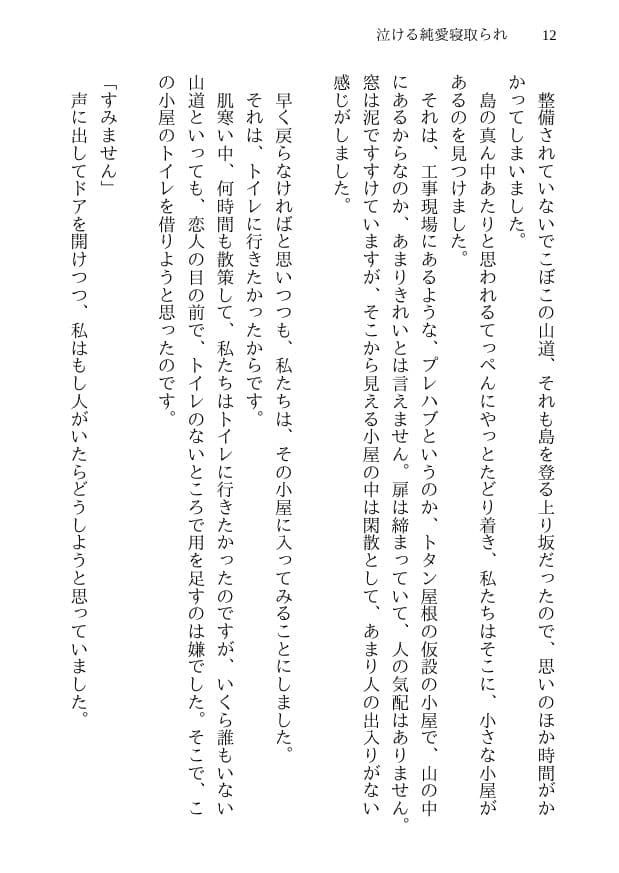 泣ける純愛寝取られ　12
　整備されていないでこぼこの山道、それも島を登る上り坂だったので、思いのほか時間がか
かってしまいました。
　島の真ん中あたりと思われるてっぺんにやっとたどり着き、私たちはそこに、小さな小屋が
あるのを見つけました。
　それは、工事現場にあるような、プレハブというのか、トタン屋根の仮設の小屋で、山の中
にあるからなのか、あまりきれいとは言えません。扉は締まっていて、人の気配はありません。
窓は泥ですすけていますが、そこから見える小屋の中は閑散として、あまり人の出入りがない
感じがしました。
　早く戻らなければと思いつつも、私たちは、その小屋に入ってみることにしました。
　それは、トイレに行きたかったからです。
　肌寒い中、何時間も散策して、私たちはトイレに行きたかったのですが、いくら誰もいない
山道といっても、恋人の目の前で、トイレのないところで用を足すのは嫌でした。そこで、こ
の小屋のトイレを借りようと思ったのです。
「すみません」
　声に出してドアを開けつつ、私はもし人がいたらどうしようと思っていました。